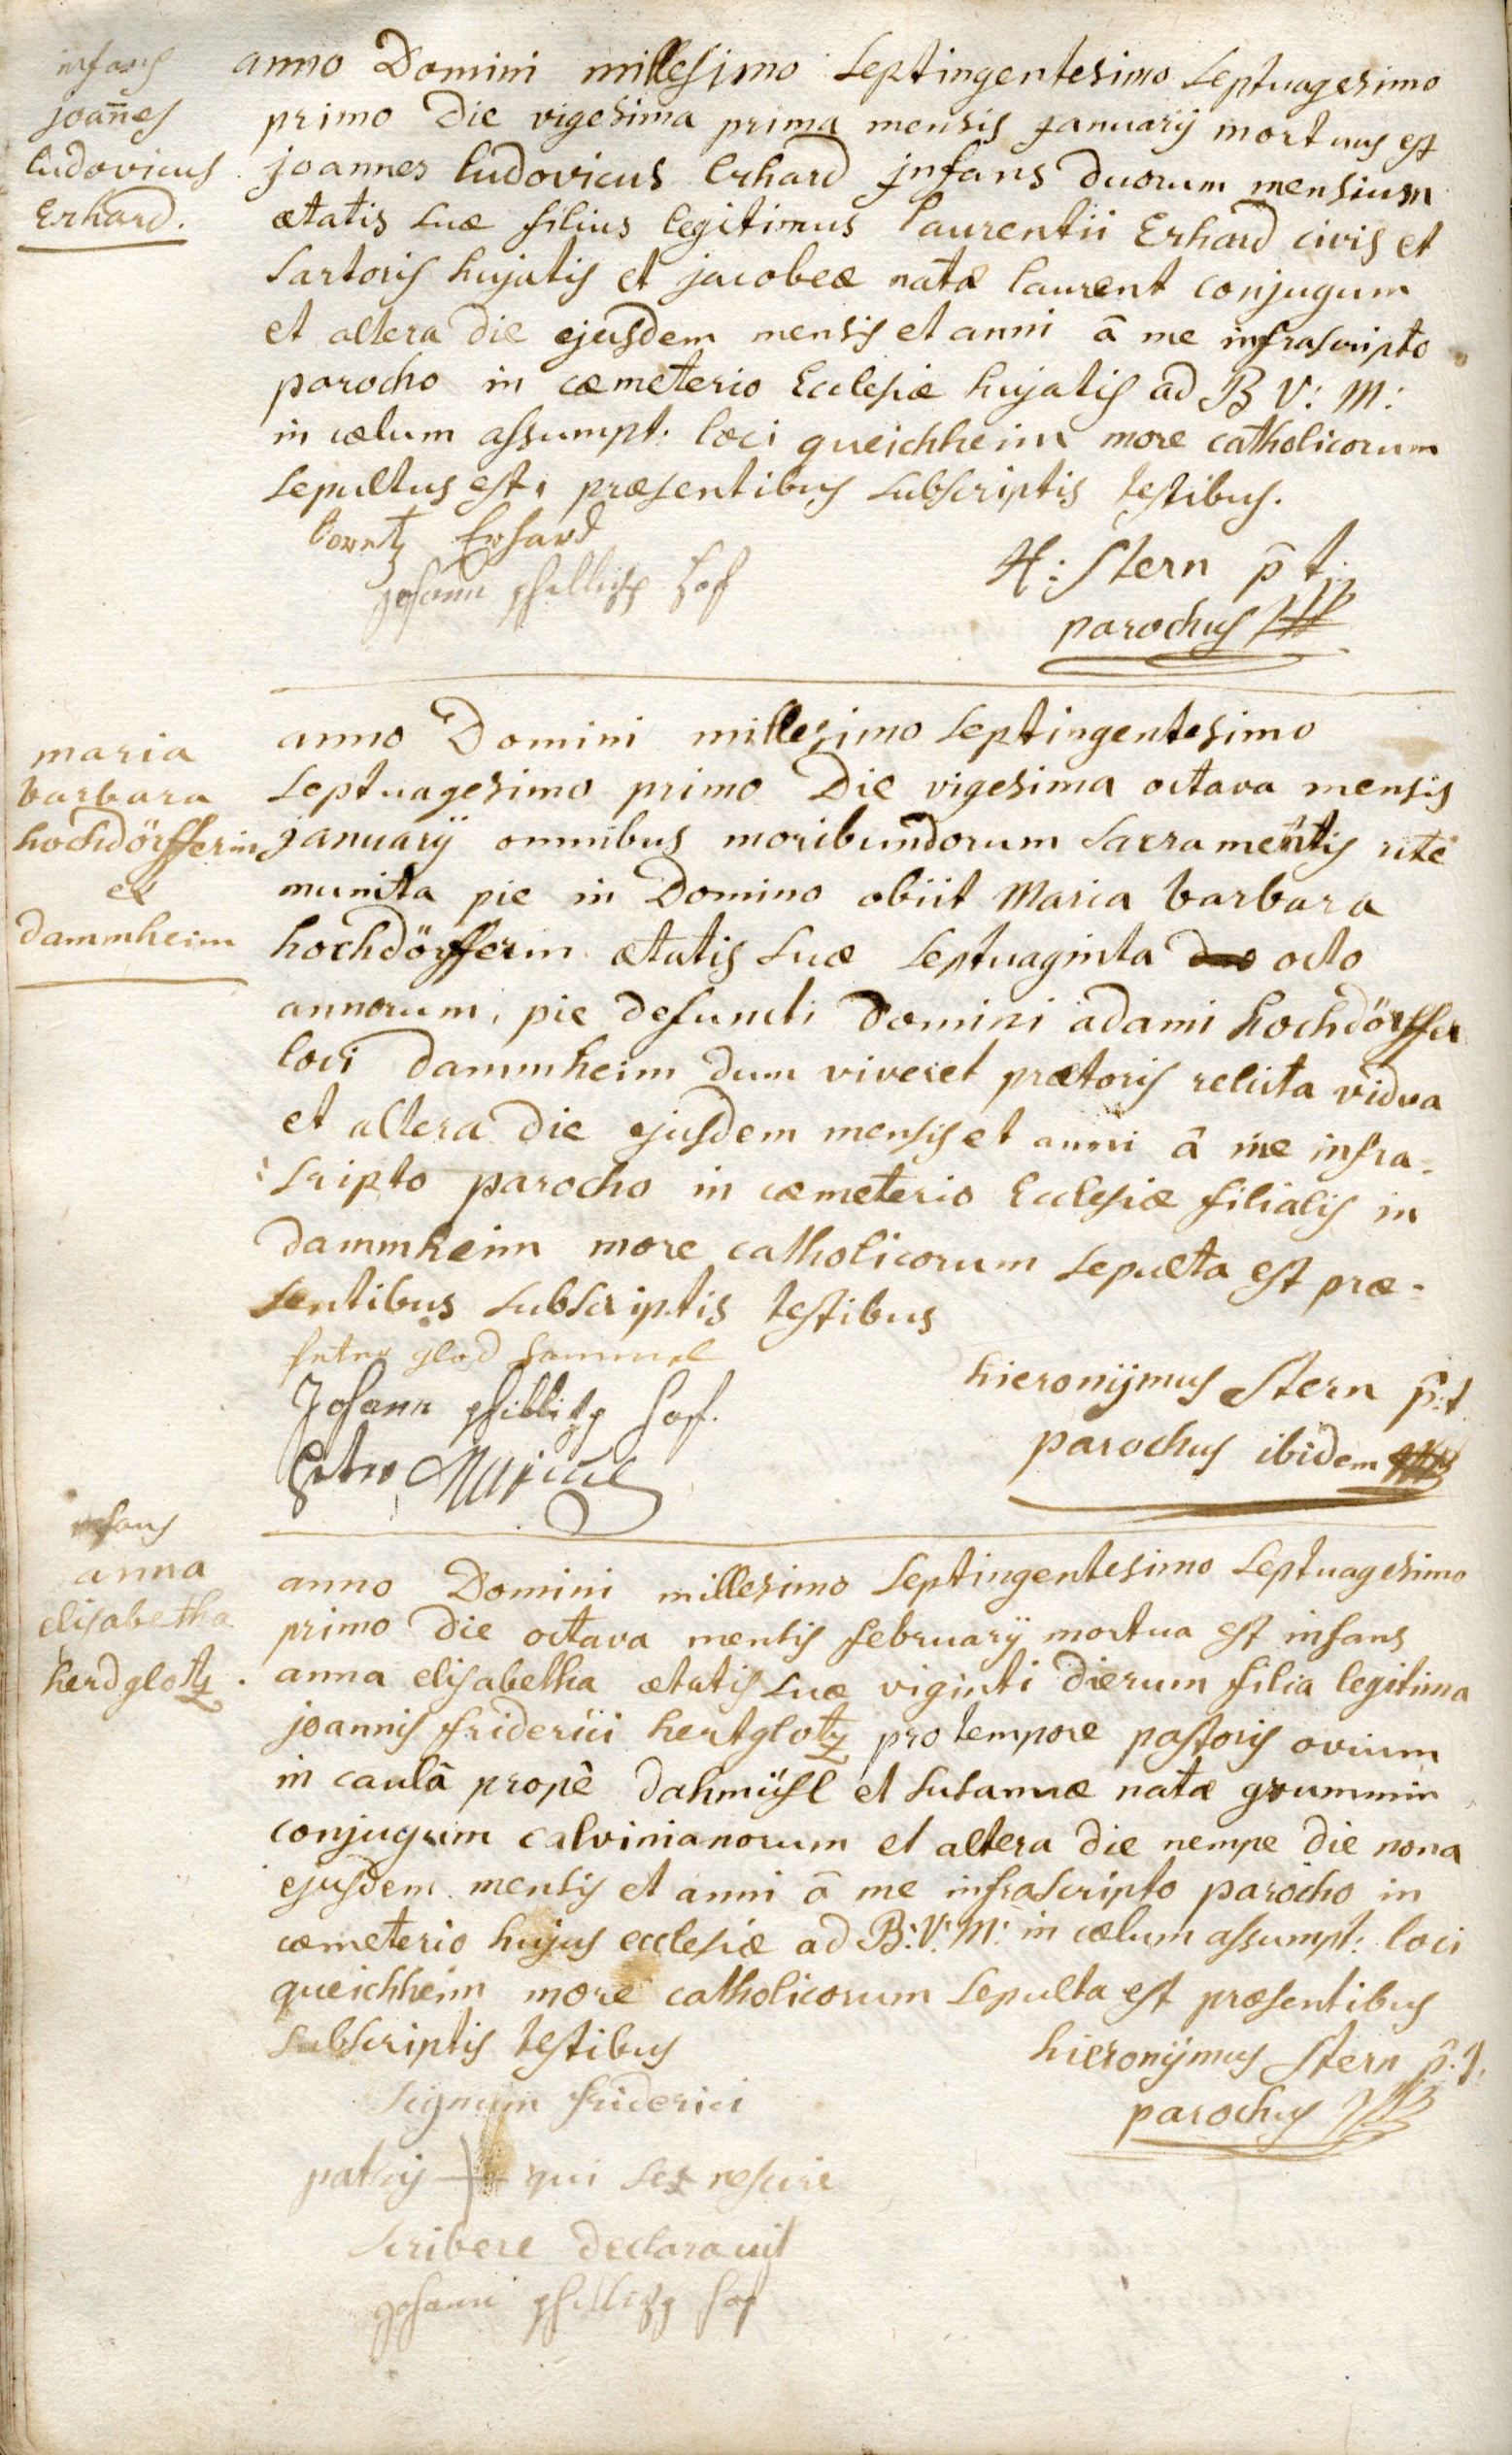 infans
joañes
ludovicus
Erhard.
anno Domini millesimo septingentesimo septuagesimo
primo Die vigesima prima mensis januarÿ mortuus est
joannes ludovicus Erhard jnfans duorum mensium
ætatis suæ filius legitimus laurentii Erhard civis et
sartoris hujatis et jacobeæ natæ laurent conjugum
et altera die ejusdem mensis et anni â me infrascripto
parocho in cæmeterio Ecclesiæ hujatis ad B V: M:
in cœlum assumpt: loci queichheim more catholicorum
sepultus est, præsentibus subscriptis testibus.
lorentz Erhard
Johann phillipp Hof
H: Stern p̄ t.
parochus
maria
barbara
hochdörfferin
ex
dammheim
anno Domini millesimo septingentesimo
septuagesimo primo Die vigesima octava mensis
januarÿ omnibus moribundorum sacramentis rite
munita pie in Domino obiit Maria barbara
hochdörfferin ætatis suæ septuaginta octo
annorum, pie defuncti Domini adami hochdörffer
loci dammheim dum viveret prætoris relicta vidua
et altera die ejusdem mensis et anni â me infra-
scripto parocho in cæmeterio Ecclesiæ filialis in
dammheim more catholicorum sepulta est præ-
sentibus subscriptis testibus
Johann phillipp Hof.
hieronÿmus Stern p̄:t.
parochus ibidem
infans
anna
elisabetha
herdglotz.
anno Domini millesimo septingentesimo septuagesimo
primo Die octava mensis februarÿ mortua est infans
anna elisabetha ætatis suæ viginti dierum filia legitima
joannis friderici hertglotz pro tempore pastoris ovium
in caulâ propê dahmühl et susannæ natæ grummin
conjugum calvinianorum et altera die nempe die nona
ejusdem mensis et anni â me infrascripto parocho in
cæmeterio hujus ecclesiæ ad B: V: M: in cœlum assumpt: loci
queichheim more catholicorum sepulta est præsentibus
subscriptis testibus
hieronÿmus Stern p̄. t.
parochus
signum friderici
patris + qui se nescire
scribere declaravit
Johann phillipp Hof